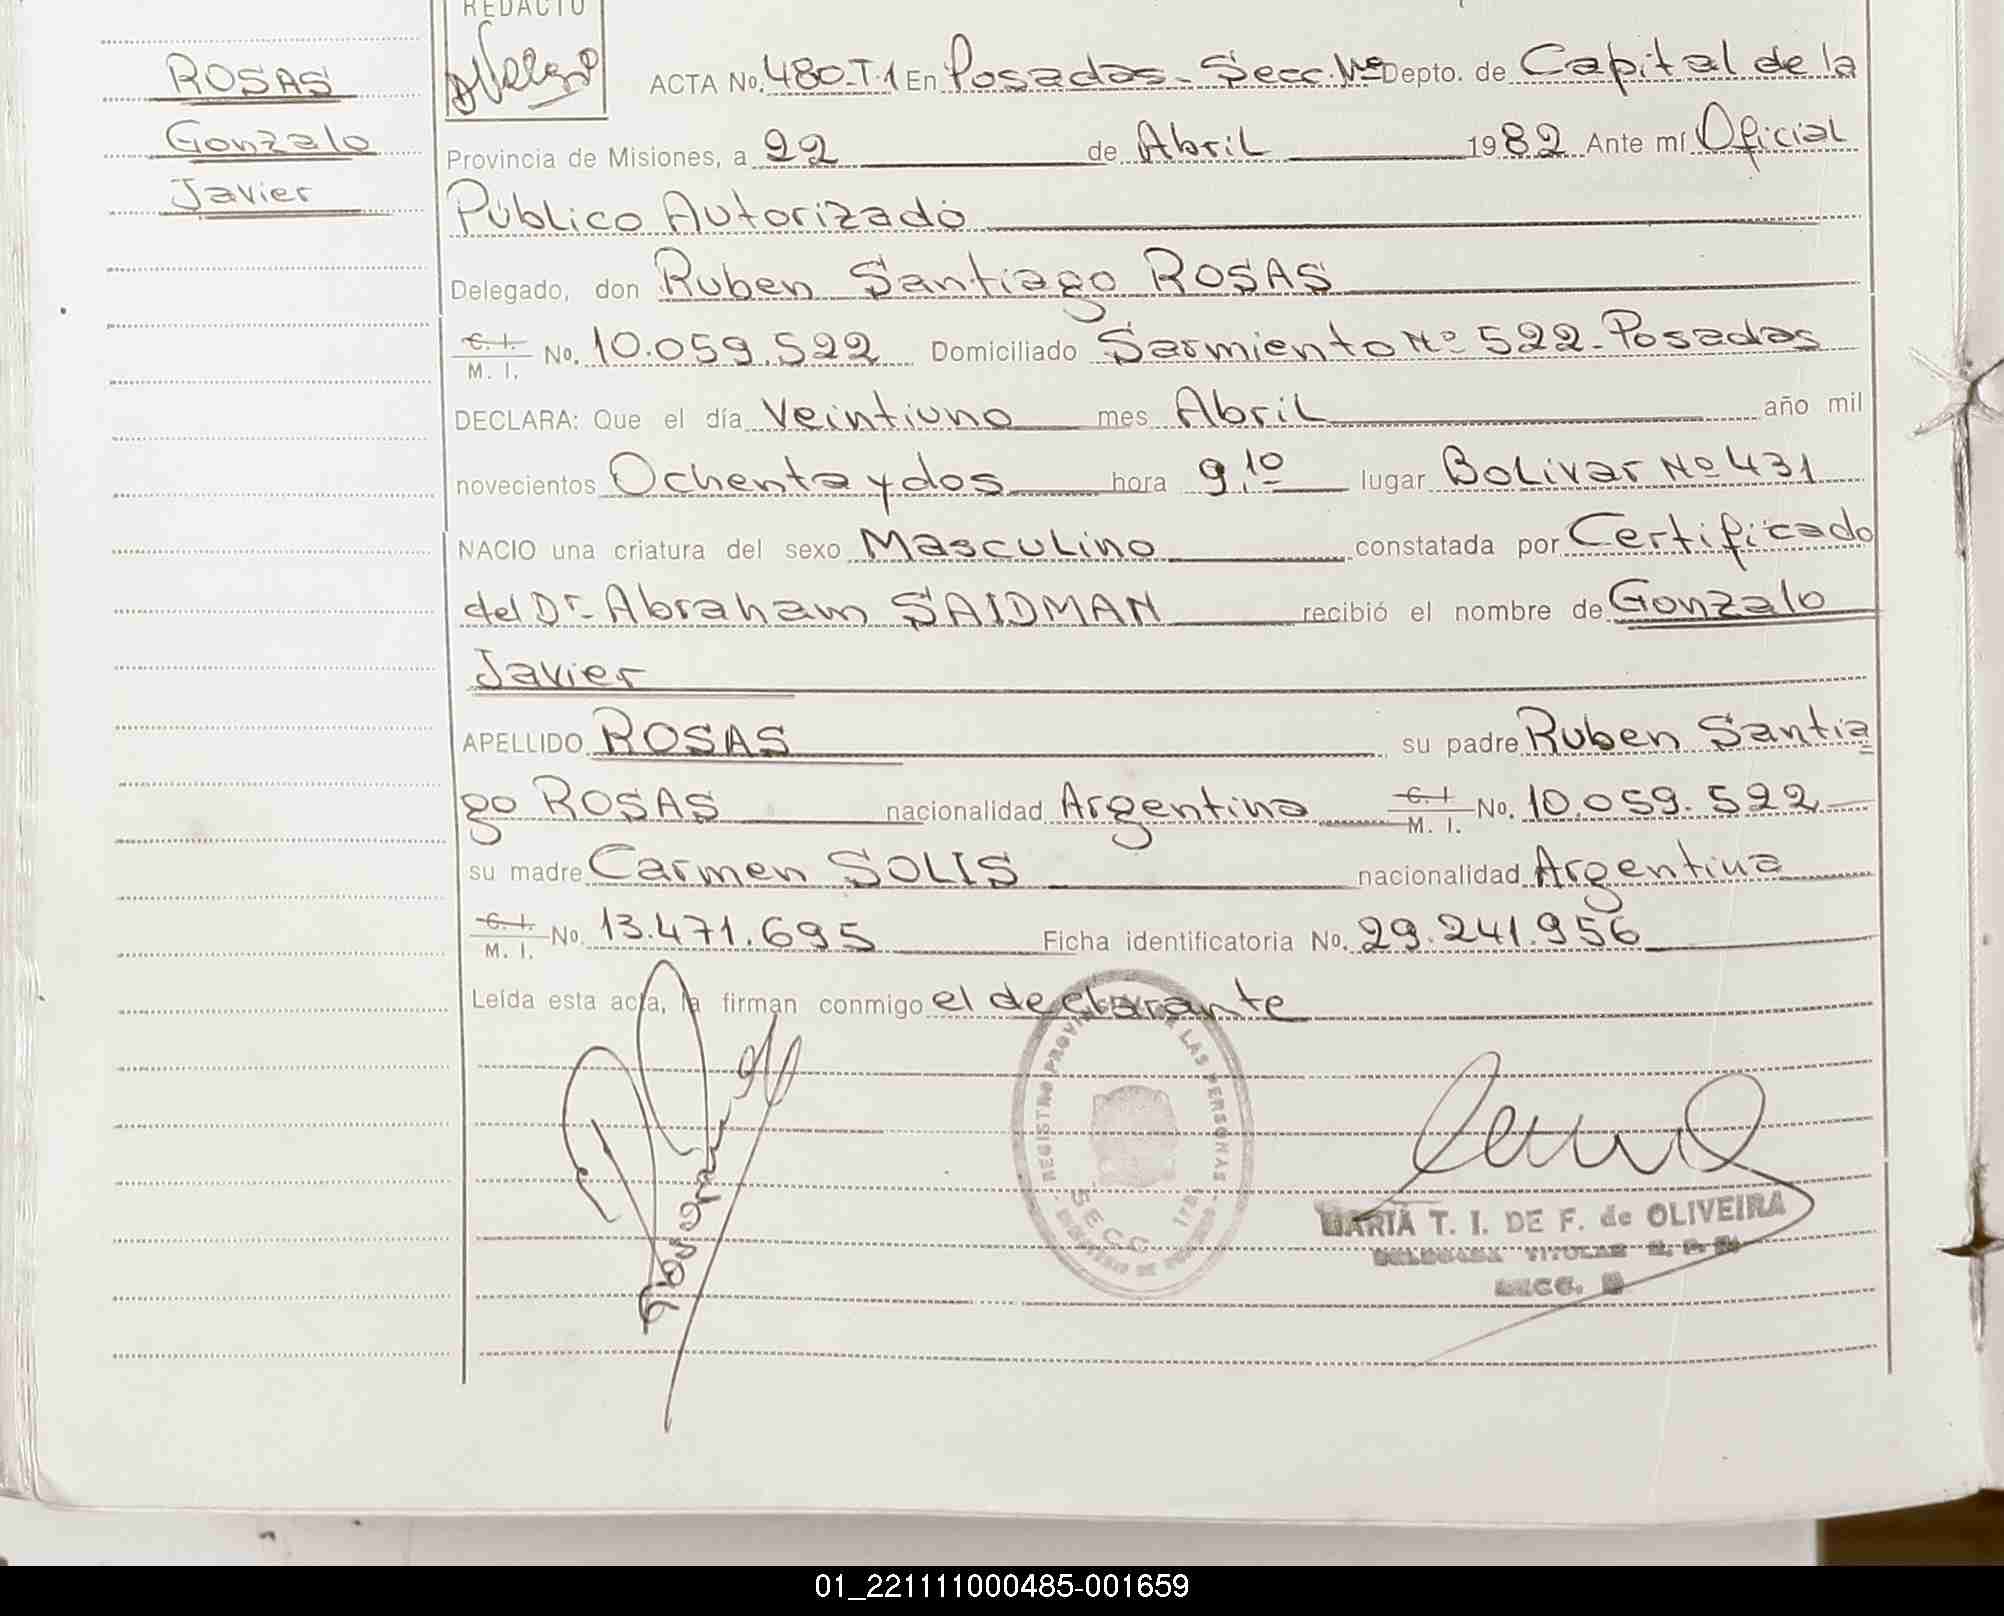 REDACTO
ROSAS
Gonzalo
Javier
ACTA No. 480-T.1 En Posadas - Secc. Nº Depto. de Capital de la
Provincia de Misiones, a 22 de Abril 1982 Ante mí Oficial
Público Autorizado
Delegado, don Ruben Santiago ROSAS
C. I. / M. I. No. 10.059.522 Domiciliado Sarmiento Nº 522 - Posadas
DECLARA: Que el día Veintiuno mes Abril año mil
novecientos Ochenta y dos hora 9,10 lugar Bolivar Nº 431
NACIO una criatura del sexo Masculino constatada por Certificado
del Dr. Abraham SAIDMAN recibió el nombre de Gonzalo
Javier
APELLIDO ROSAS su padre Ruben Santia
go ROSAS nacionalidad Argentina C. I. / M. I. No. 10.059.522
su madre Carmen SOLIS nacionalidad Argentina
C. I. / M. I. No. 13.471.695 Ficha identificatoria No. 29.241.956
Leída esta acta, la firman conmigo el declarante
REGISTRO PROVINCIAL DE LAS PERSONAS
SECC.
MARIA T. I. DE F. de OLIVEIRA
DELEGADA TITULAR R. P. P.
SECC.
01_221111000485-001659